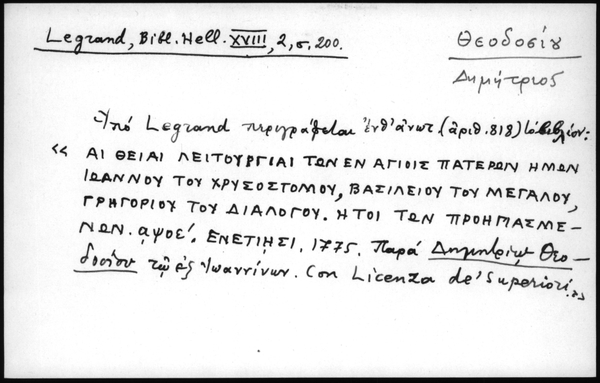 Legrand, Bibl. Hell. XVIII, 2, σ. 200.
Θεοδοσίου
Δημήτριος
Ὑπό Legrand περιγράφεται ἐνθ' ἀνωτ. (ἀριθ. 818) τό βιβλίον:
« ΑΙ ΘΕΙΑΙ ΛΕΙΤΟΥΡΓΙΑΙ ΤΩΝ ΕΝ ΑΓΙΟΙΣ ΠΑΤΕΡΩΝ ΗΜΩΝ
ΙΩΑΝΝΟΥ ΤΟΥ ΧΡΥΣΟΣΤΟΜΟΥ, ΒΑΣΙΛΕΙΟΥ ΤΟΥ ΜΕΓΑΛΟΥ,
ΓΡΗΓΟΡΙΟΥ ΤΟΥ ΔΙΑΛΟΓΟΥ. ΗΤΟΙ ΤΩΝ ΠΡΟΗΓΙΑΣΜΕ-
ΝΩΝ. αψοε΄. ΕΝΕΤΙΗΣΙ, 1775. Παρά Δημητρίῳ Θεο-
δοσίου τῷ ἐξ Ἰωαννίνων. Con Licenza de' Superiori.»